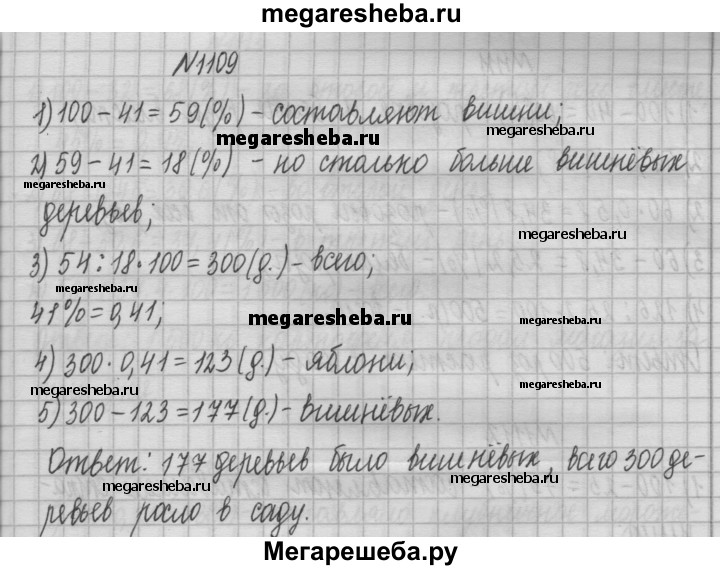 megaresheba.ru
N1109
1) 100 - 41 = 59 (%) - составляют вишни;
megaresheba.ru
2) 59 - 41 = 18 (%) - на столько больше вишнёвых
megaresheba.ru
деревьев;
megaresheba.ru
3) 54 : 18 · 100 = 300 (д.) - всего;
megaresheba.ru
41% = 0,41;
megaresheba.ru
4) 300 · 0,41 = 123 (д.) - яблони;
megaresheba.ru
megaresheba.ru
5) 300 - 123 = 177 (д.) - вишнёвых.
Ответ: 177 деревьев было вишнёвых, всего 300 де-
megaresheba.ru
megaresheba.ru
ревьев росло в саду.
megaresheba.ru
Мегарешеба.ру